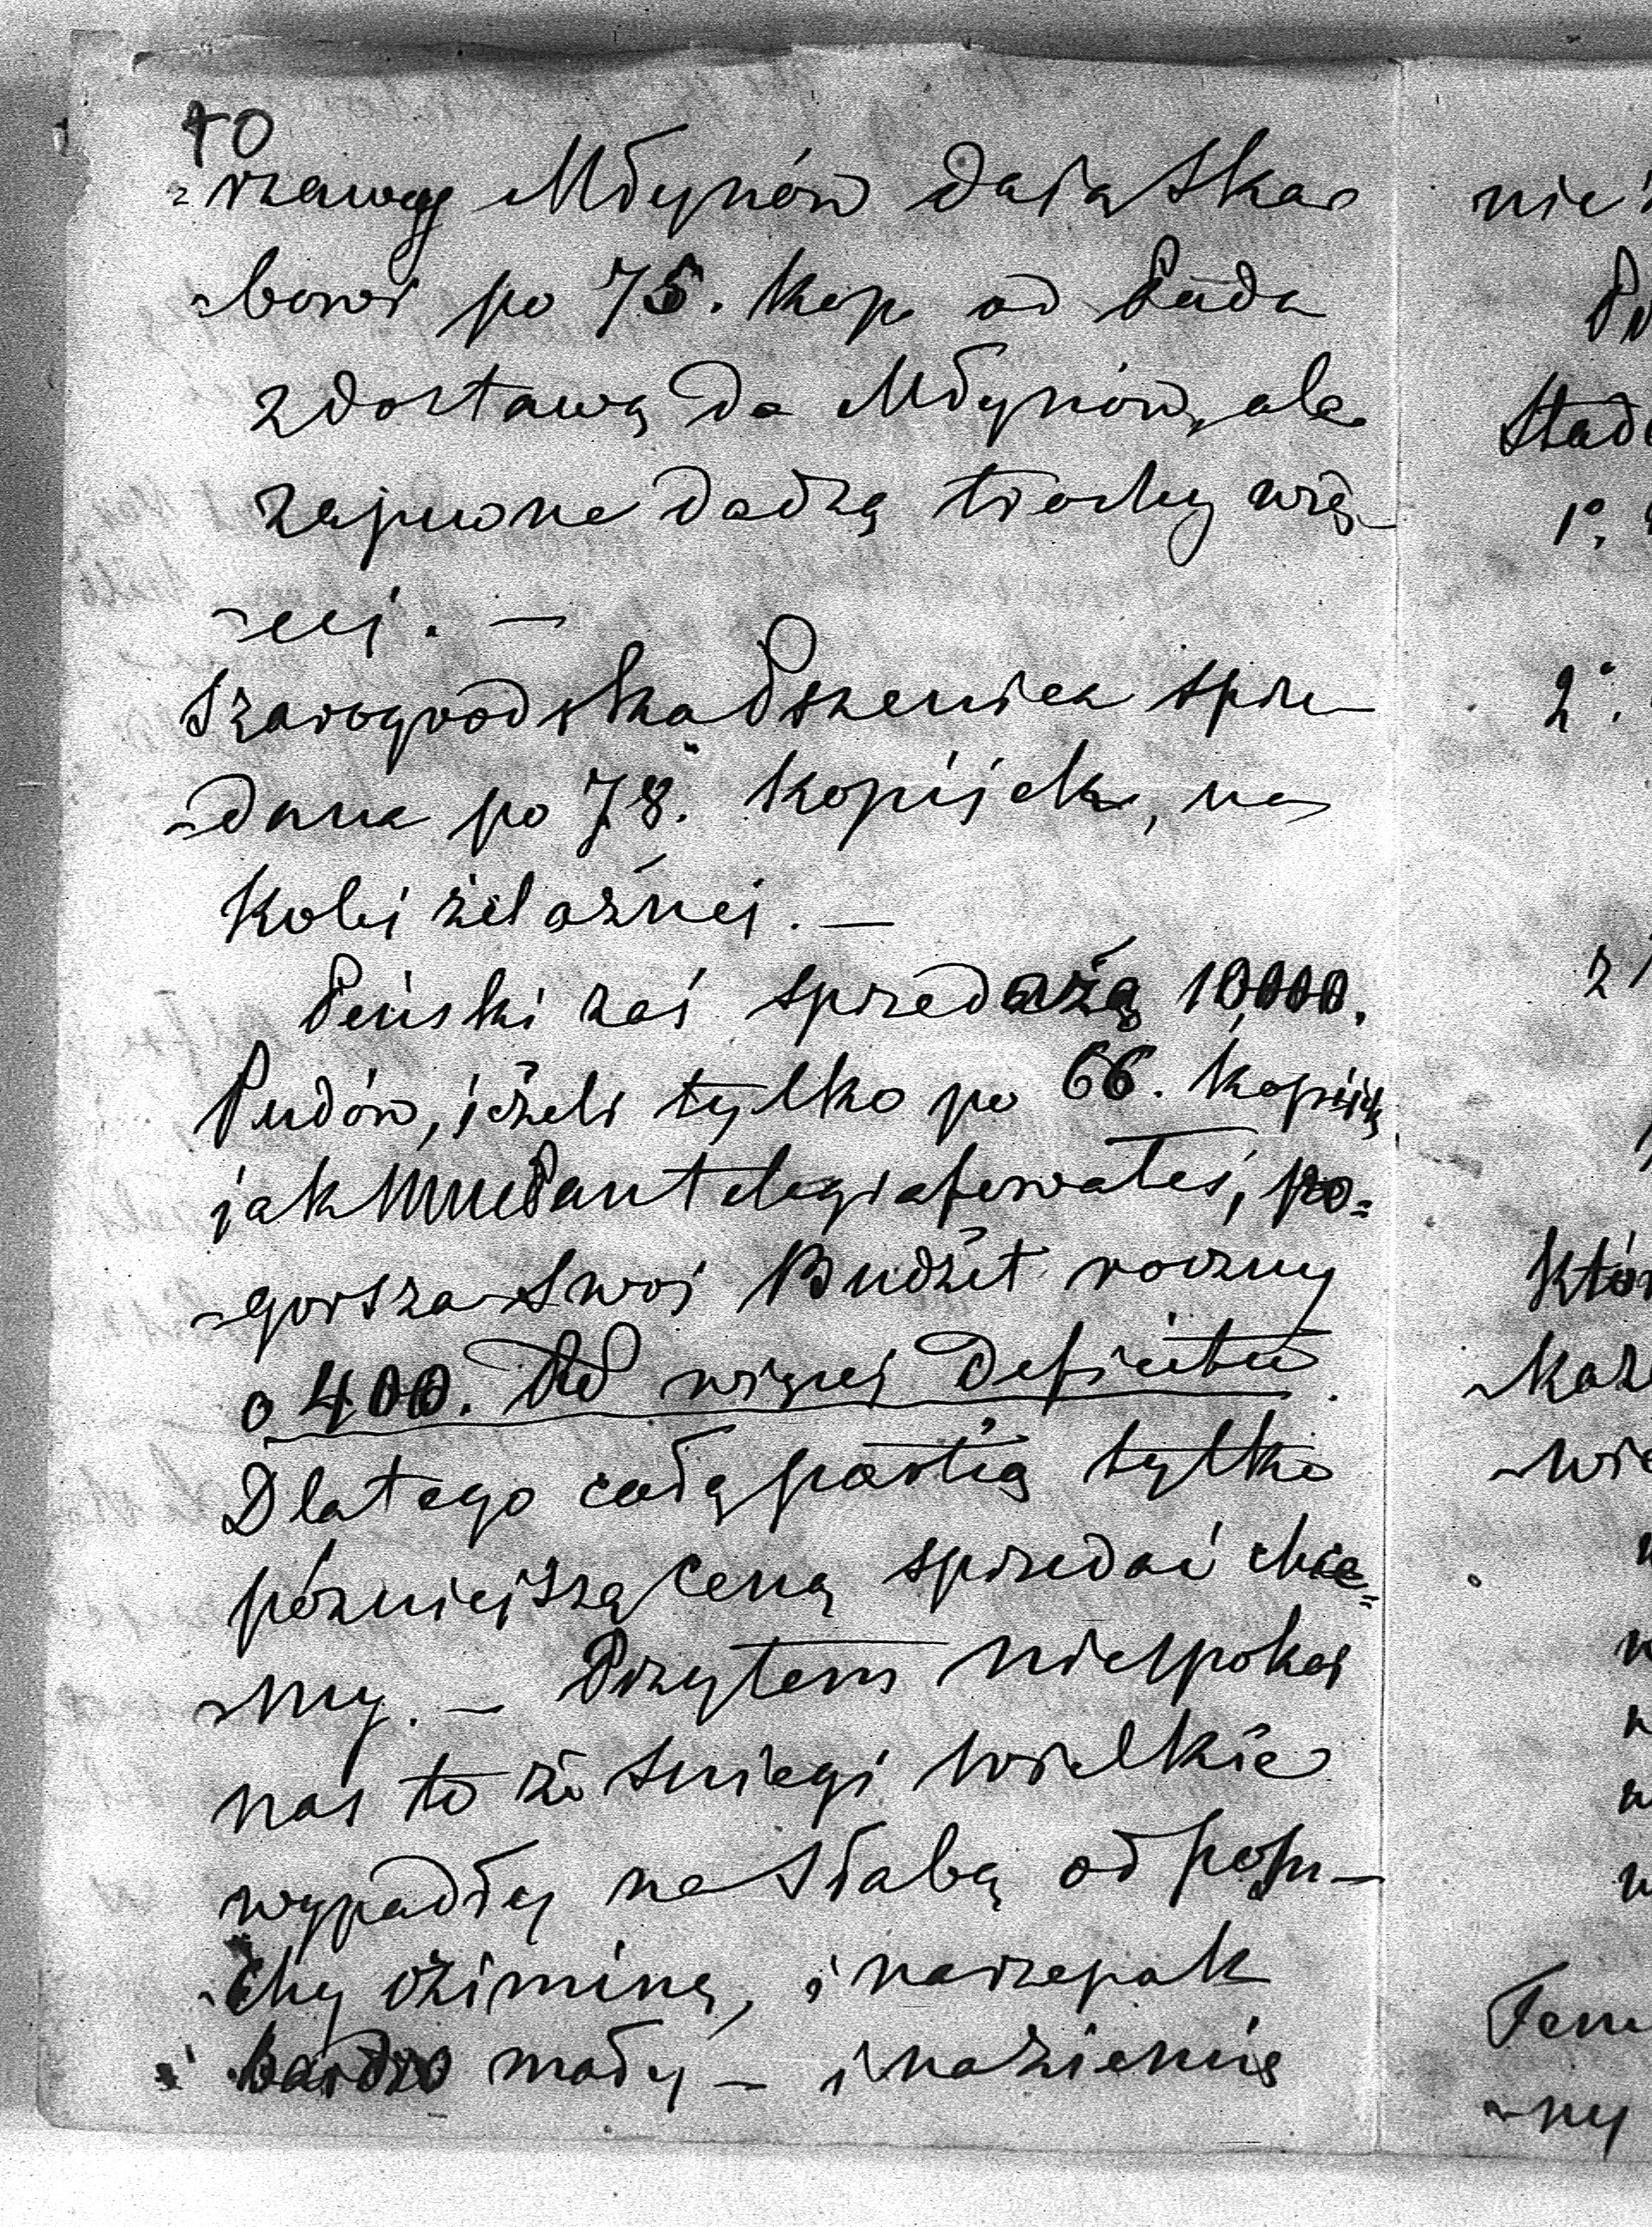 70
-rzawy Młynów dają Skar
-bowi po 75. kop. od Puda
z dostawą do Młynów, ale
zapewne dadzą trochy wię-
-cej. —
Szarogrodzka Pszenica sprze-
-dana po 78. kopijek, na
Kolei żelaznej. —
Peński zaś sprzedażą 10,000.
Pudów, jeżeli tylko po 66. kopijek
jak mnie Pan telegrafowałeś, po=
-gorsza swoj Budżet roczny
o 400. Rb więcej Deficitu.
Dlatego całą partią tylko
pózniejszą ceną sprzedać chce=
-my. — Przytem niespokoi
nas to że sniegi wielkie
wypadły na słabą od posu-
-chy oziminę, i na rzepak
bardzo mały — i na ziemię
nie
Stad
1°.
2°.
z
Któr
-każ
-wie
-ny